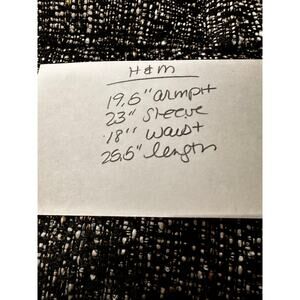 H & M
19.5" armpit
23" sleeve
18" waist
25.5" length